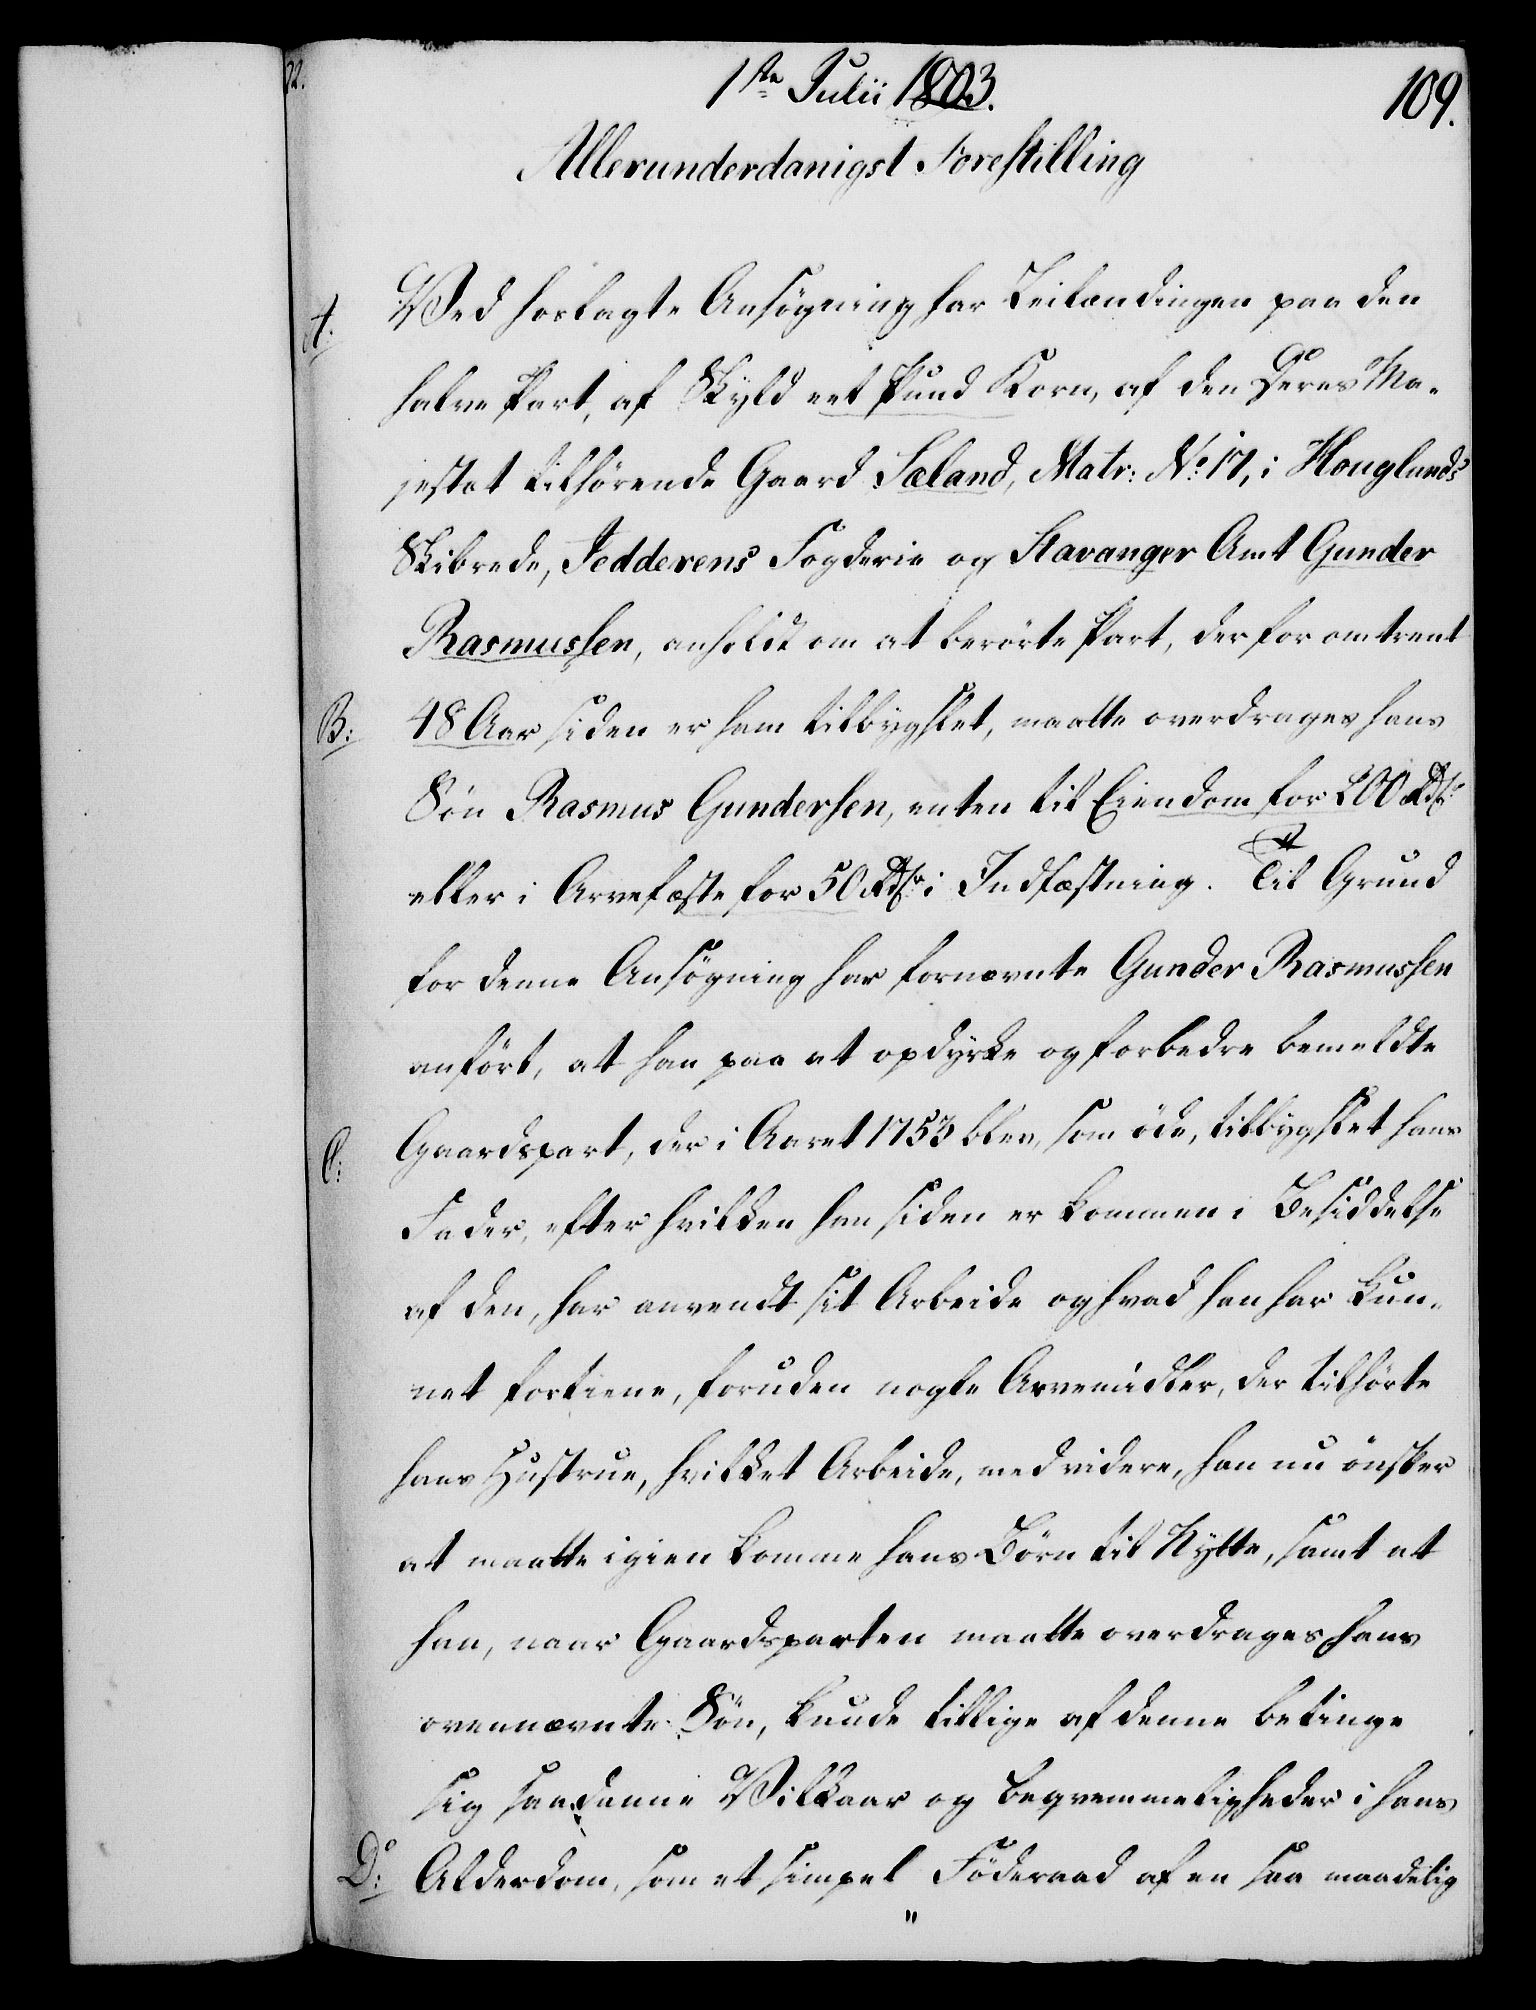 72.
1ste Julii 1803.
109.
Allerunderdanigst Forestilling
A. Ved hoslagte Ansøgning har Leilændingen paa den
halve Part, af Skyld eet Pund Korn, af den Deres Ma-
jestæt tilhørende Gaard Sæland, Matr: No 17, i Houglands
Skibrede, Jedderens Fogderie og Stavanger Amt Gunder
Rasmussen, anholdt om at berørte Part, der for omtrent
B: 48 Aar siden er ham tilbygslet, maatte overdrages hans
Søn Rasmus Gundersen, enten til Eiendom for 200 Rdlr
eller i Arvefæste for 50 Rdlr i Indfæstning. Til Grund
for denne Ansøgning har fornævnte Gunder Rasmussen
anført, at han paa at opdyrke og forbedre bemeldte
C: Gaardspart, der i Aaret 1753 blev, som øde, tilbygslet hans
Fader, efter hvilken han siden er kommen i Besiddelse
af den, har anvendt sit Arbeide og hvad han har kun-
net fortiene, foruden nogle Arvemidler, der tilhørte
hans Hustrue, hvilket Arbeide, med videre, han nu ønsker
at maatte igien komme hans Børn til Nytte, samt at
han, naar Gaardsparten maatte overdrages hans
ovennævnte Søn, kunde tillige af denne betinge
sig saadanne Vilkaar og beqvemmeligheder i hans
D: Alderdom, som et simpel Føderaad af en saa maadelig
"